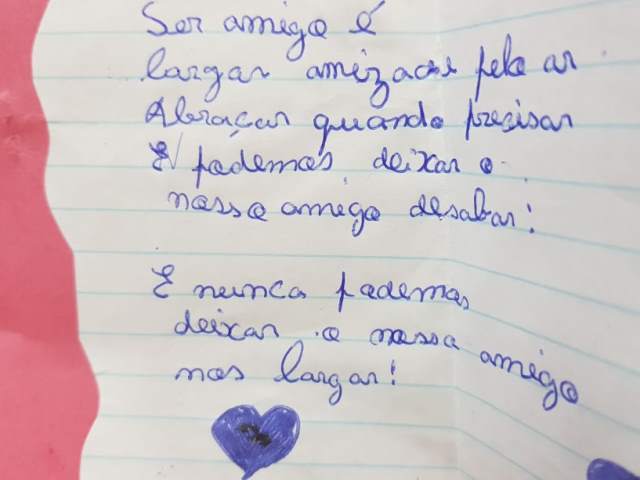 Ser amigo é
largar amizade pelo ar
Abraçar quando precisar
E podemos deixar o
nosso amigo desabar!
E nunca podemos
deixar o nosso amigo
nos largar!